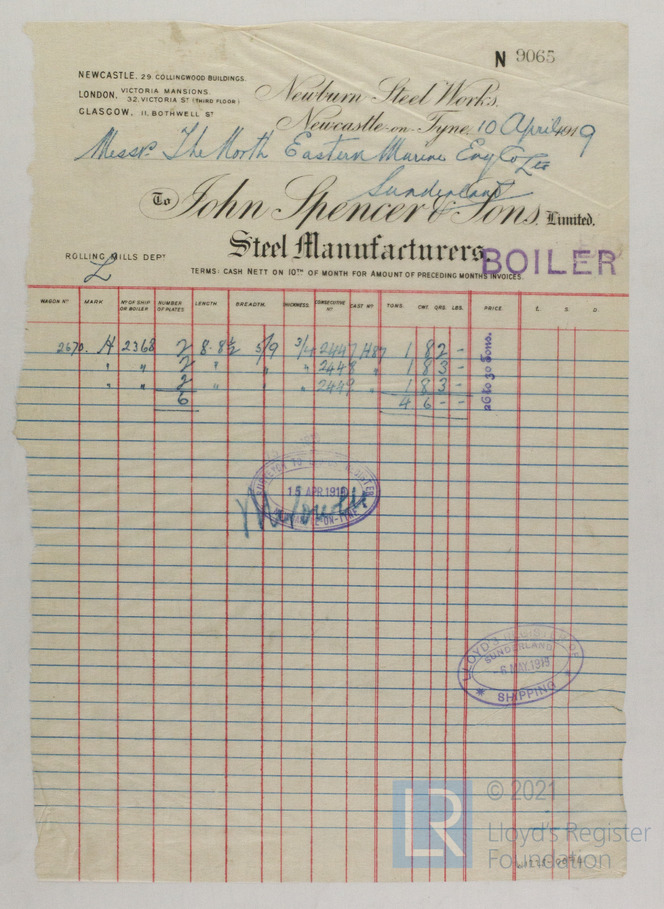 N 9065
NEWCASTLE. 29 COLLINGWOOD BUILDINGS.
LONDON. VICTORIA MANSIONS.
32, VICTORIA ST (THIRD FLOOR)
GLASGOW, 11, BOTHWELL ST
Newburn Steel Works.
Newcastle-on-Tyne, 10 April 1919
Messrs The North Eastern Marine Eng Co Ltd
Sunderland
To John Spencer & Sons, Limited.
Steel Manufacturers
BOILER
ROLLING MILLS DEPT
L
TERMS: CASH NETT ON 10TH OF MONTH FOR AMOUNT OF PRECEDING MONTHS INVOICES.
WAGON NO MARK NO OF SHIP OR BOILER NUMBER OF PLATES LENGTH. BREADTH. THICKNESS. CONSECUTIVE NO CAST NO TONS. CWT. QRS. LBS. PRICE. £. S. D.
2670. H 2368 2 8-8½ 5/9 2447 H87 1 8 2 -
" " 2 " " " 2448 " 1 8 3 -
" " 2 " " " 2449 " 1 8 3 -
6 4 6 - -
26 to 30 tons.
SURVEYOR TO
15 APR 1919
-ON-TYNE
LLOYD'S REGISTER OF
SUNDERLAND
6 MAY. 1919
SHIPPING
LR
© 2021
Lloyd's Register
Foundation